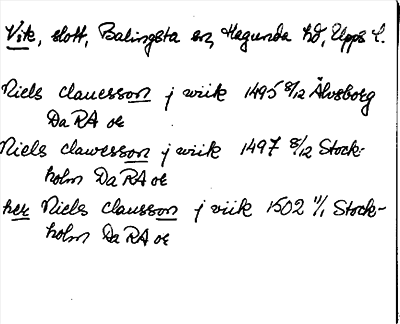 Vik, slott, Balingsta sn, Hagunda hd, Upps l.
Niels clauesson j wiik 1495 8/12 Älvsborg
DaRA or
Niels clawesson j wiik 1497 8/12 Stock-
holm DaRA or
her Niels clausson j viik 1502 11/1 Stock-
holm DaRA or